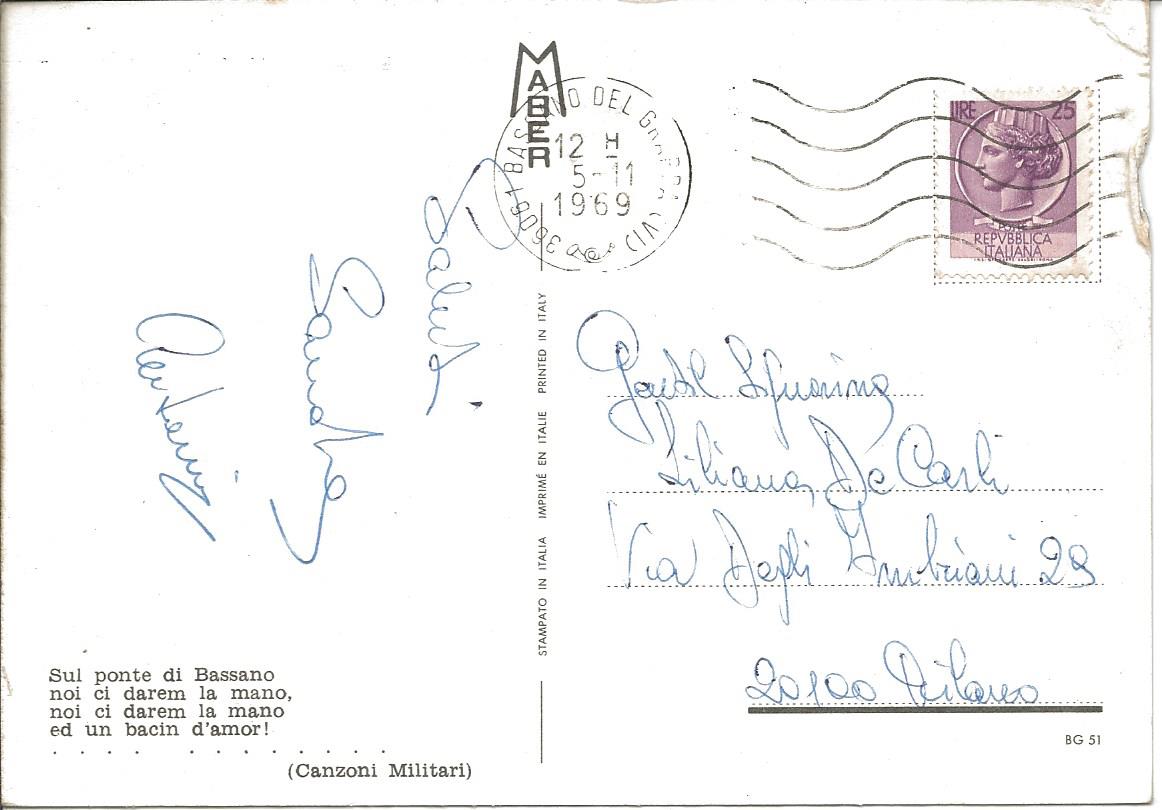 MABER
36061 BASSANO DEL GRAPPA (VI)
12 H
5-11
1969
LIRE 25
POSTE
REPVBBLICA
ITALIANA
Saluti
Sandra
Gentil Signorina
Liliana De Carli
Via Degli Imbriani 29
20100 Milano
STAMPATO IN ITALIA IMPRIMÉ EN ITALIE PRINTED IN ITALY
Sul ponte di Bassano
noi ci darem la mano,
noi ci darem la mano
ed un bacin d'amor!
. . . . . . . . . . . .
(Canzoni Militari)
BG 51